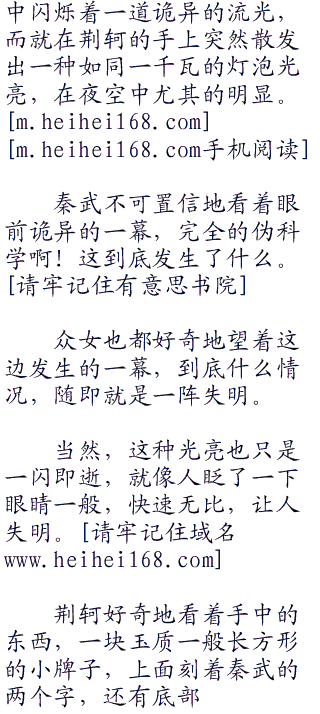 中闪烁着一道诡异的流光，
而就在荆轲的手上突然散发
出一种如同一千瓦的灯泡光
亮，在夜空中尤其的明显。
[m.heihei168.com]
[m.heihei168.com手机阅读]
秦武不可置信地看着眼
前诡异的一幕，完全的伪科
学啊！这到底发生了什么。
[请牢记住有意思书院]
众女也都好奇地望着这
边发生的一幕，到底什么情
况，随即就是一阵失明。
当然，这种光亮也只是
一闪即逝，就像人眨了一下
眼睛一般，快速无比，让人
失明。[请牢记住域名
www.heihei168.com]
荆轲好奇地看着手中的
东西，一块玉质一般长方形
的小牌子，上面刻着秦武的
两个字，还有底部